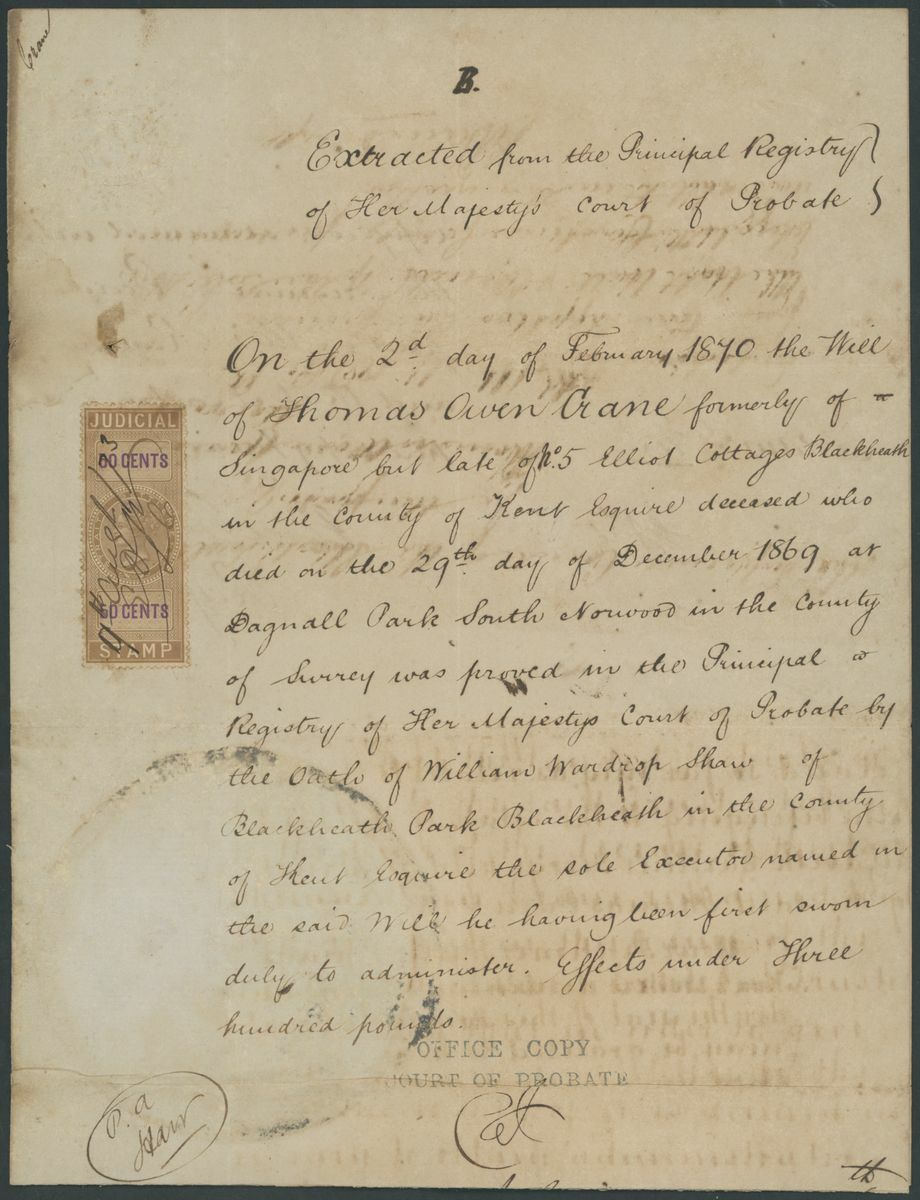 Crane
B.
Extracted from the Principal Registry
of Her Majesty's Court of Probate
On the 2d. day of February 1870 the Will
of Thomas Owen Crane formerly of
Singapore but late of No. 5 Elliot Cottages Blackheath
in the County of Kent Esquire deceased who
died on the 29th. day of December 1869 at
Dagnall Park South Norwood in the County
of Surrey was proved in the Principal
Registry of Her Majestys Court of Probate by
the Oath of William Wardrop Shaw of
Blackheath Park Blackheath in the County
of Kent Esquire the sole Executor named in
the said Will he having been first sworn
duly to administer. Effects under Three
hundred pounds.
JUDICIAL
50 CENTS
50 CENTS
STAMP
OFFICE COPY
COURT OF PROBATE
P. a